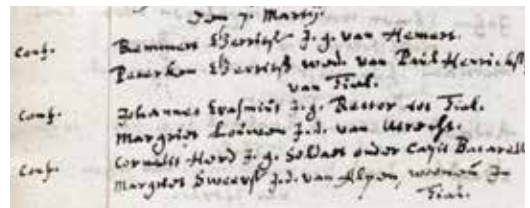 Den 7. Martij.
Conf. Remmert Gerritß J. g. van Hemert.
Peterken Gerritß wed. van Paül Henrichß
van Tiel.
Conf. Johannes Erasmiüs J. g. Rector tot Tiel.
Margriet Loüwen J. d. van Utrecht.
Conf. Cornelis Herd J. g. Soldaet onder Capit
Margriet Sweerß J. d. van Alpen, woonen in
Tiel.